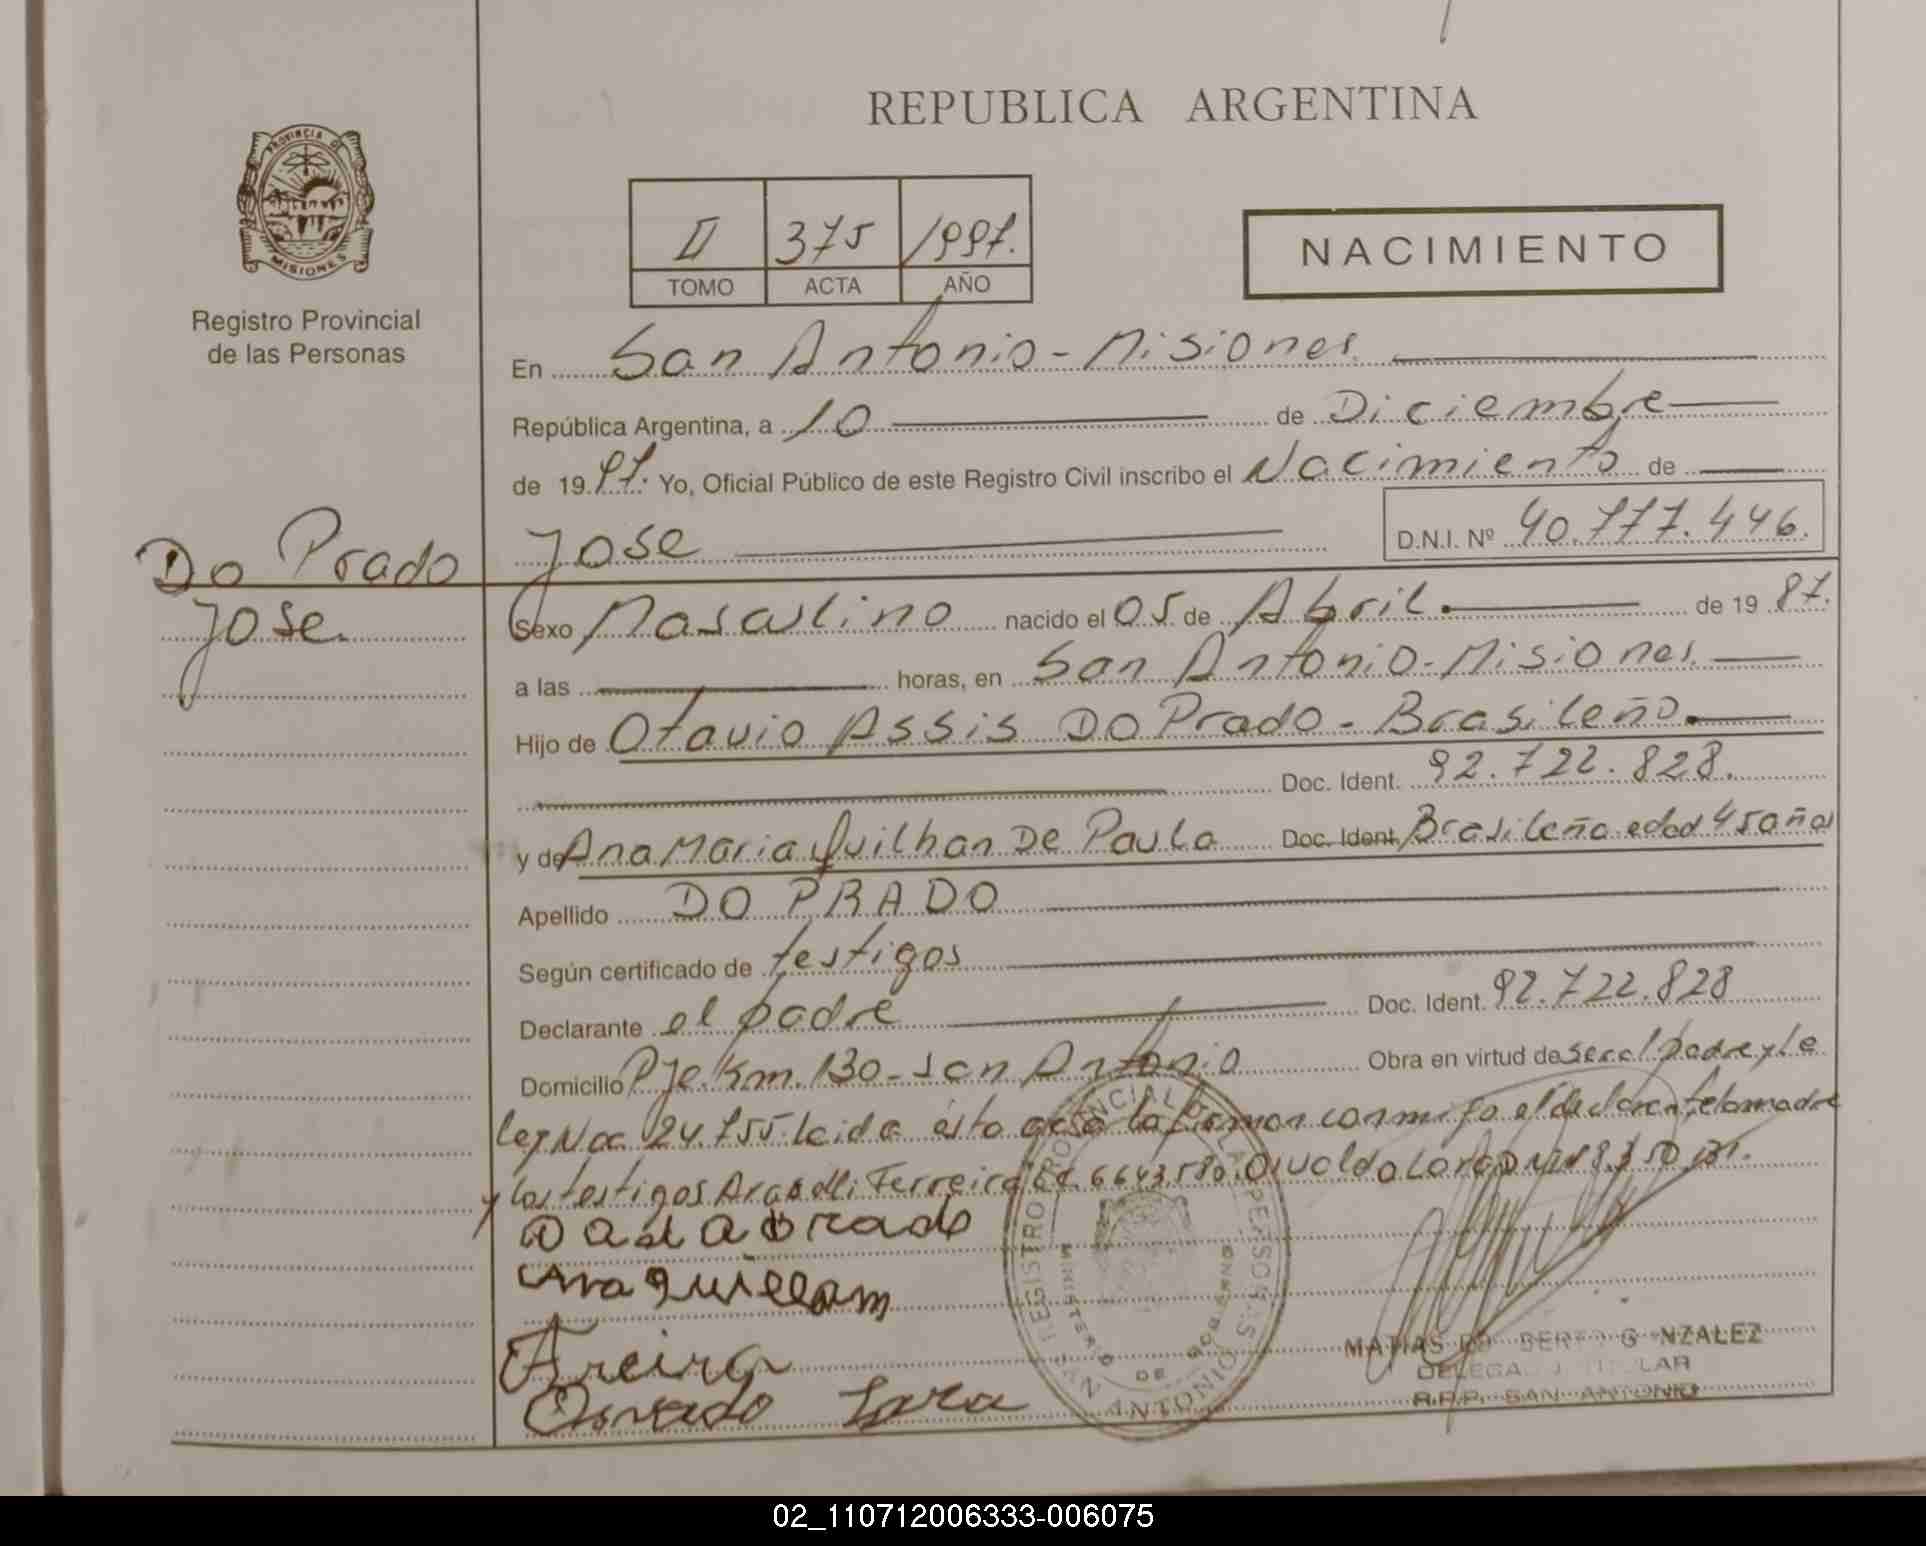 REPUBLICA ARGENTINA
PROVINCIA DE
MISIONES
Registro Provincial
de las Personas
II 375 1997.
TOMO ACTA AÑO
NACIMIENTO
En San Antonio - Misiones
República Argentina, a 10 de Diciembre
de 1997. Yo, Oficial Público de este Registro Civil inscribo el Nacimiento de
Jose D.N.I. Nº 40.777.446.
Do Prado
Jose.
Sexo Masculino nacido el 05 de Abril. de 1987.
a las horas, en San Antonio - Misiones.
Hijo de Otavio Assis Do Prado - Brasileño.
Doc. Ident. 92.722.828.
y de Ana Maria Quilhan De Paula Doc. Ident. Brasileña edad 45 años
Apellido DO PRADO
Según certificado de testigos
Declarante el padre Doc. Ident. 92.722.828
Domicilio Pje. Km. 130 - San Antonio Obra en virtud de ser el padre y le
ley Nac 24.755. leida esta acta la firman conmigo el declarante la madre
y los testigos Ferreira 6643.580. Osvaldo
Ana Quillam
Osvaldo Lara
REGISTRO PROVINCIAL DE LAS PERSONAS
MINISTERIO DE GOBIERNO
SAN ANTONIO
MATIAS GONZALEZ
DELEGADO TITULAR
R.P.P. SAN ANTONIO
02_110712006333-006075